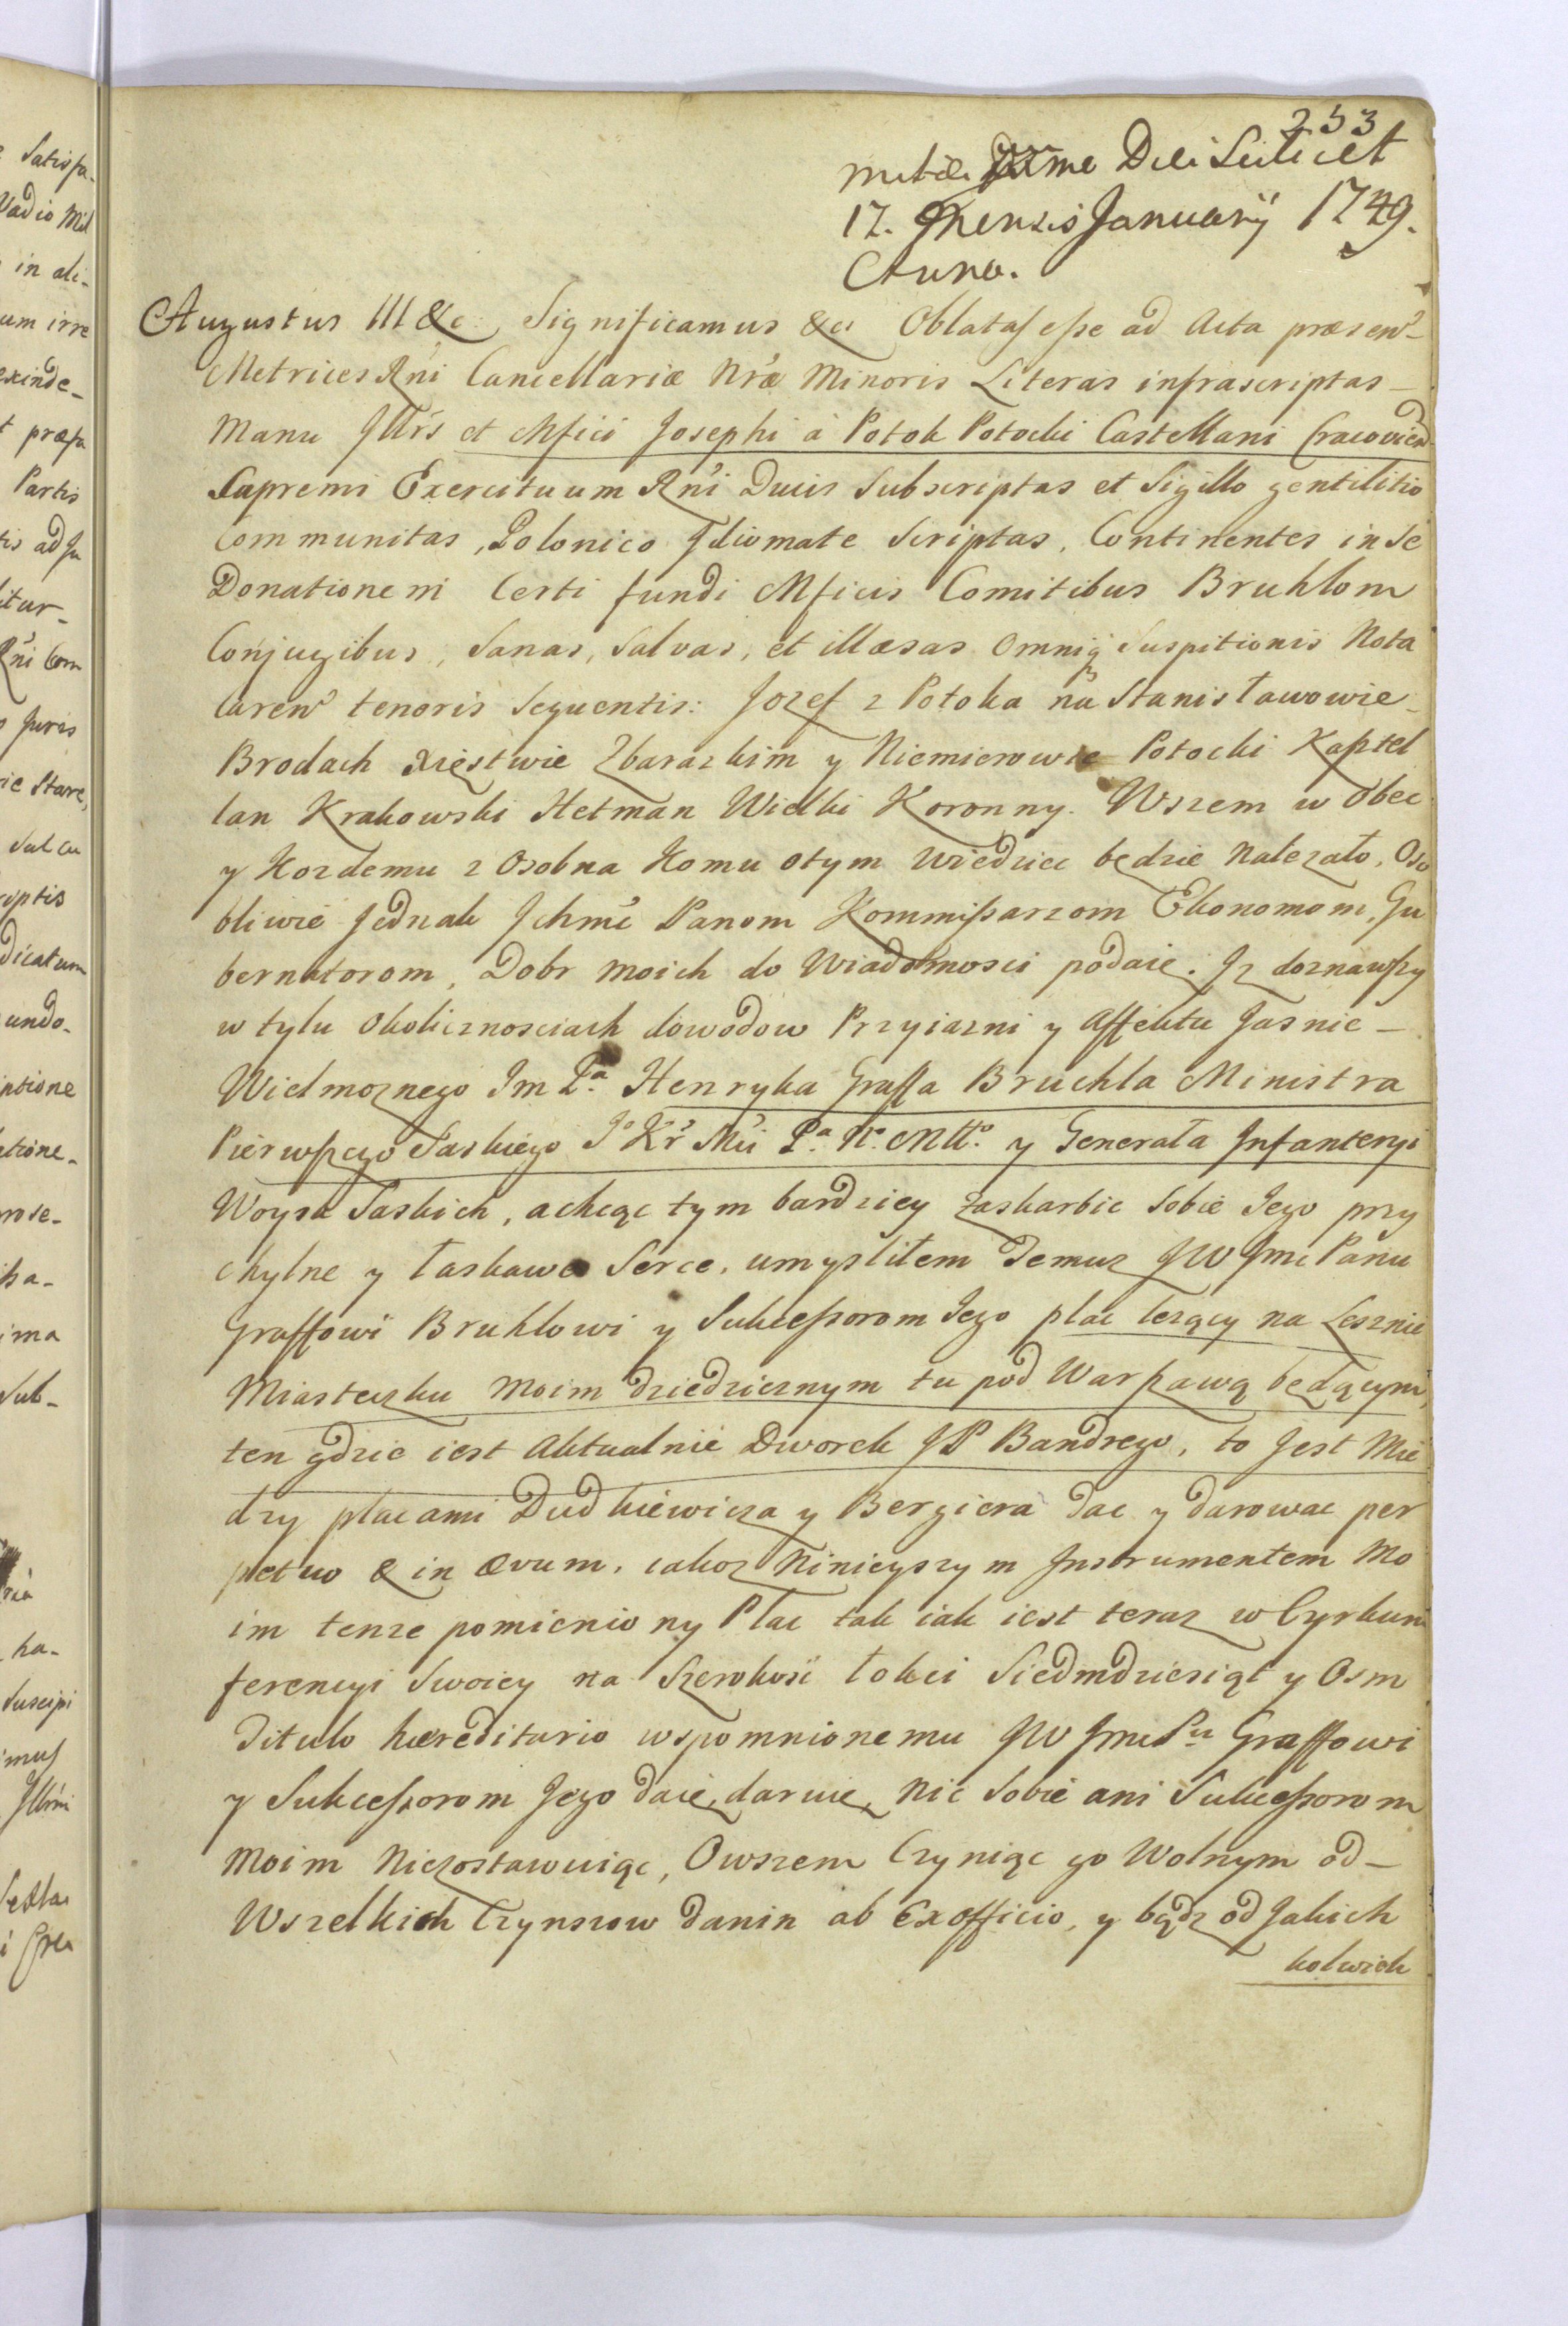 253
Die Scilicet
17. Mensis Januarij 1749.
Anno.
Augustus III &c. Significamus &c. Oblatas esse ad Acta præsen̄
Metrices Rńi Cancellariæ Nrǽ Minoris Literas infrascriptas
Manu Jllrís et Mfici Josephi à Potok Potocki Castellani Cracovien
Supremi Exercituum Rńi Ducis Subscriptas et Sigillo gentilitio
Communitas, Polonico Jdiomate Scriptas, Continentes in Se
Donationem Certi fundi Mficis Comitibus Bruhlom
Conjugibus, Sanas, Salvas, et illæsas Omniq Suspitionis Nota
caren̄ tenoris Sequentis: Jozef z Potoka na Stanisławowie
Brodach Xięstwie Zbarazkim y Niemierowie Potocki Kasztel
lan Krakowski Hetman Wielki Koronny. Wszem w obec
y Kozdemu z Osobna Komu otym wiedziec będzie Nalezało, Oso
bliwie Jednak Jchmć Panom Kommissarzom Ekonomom, Gu
bernatorom, Dobr moich do Wiadomosci podaię. Jz doznawszy
w tylu Okolicznosciach dowodow Przyiazni y Affektu Jasnie
Wielmoznego Jm Pa Henryka Graffa Bruchla Ministra
Pierwszego Saskiego Jo Kr Mći Pa No Mtto y Generała Jnfanteryi
Woysk Saskich, a chcąc tym bardziey Zaskarbic Sobie Jego przy
chylne y łaskawe Serce, umysliłem Temuz JW Jmc Panu
Graffowi Bruhlowi y Sukcessorom Jego plac lezący na Lesznie
Miasteczku Moim dziedzicznym tu pod Warszawą będącym,
ten gdzie iest Aktualnie Dworek JP Bandrego, to Jest Mię
dzy placami Dudkiewicza y Bergiera dac y darowac per
petuo & in ævum, iakoz Ninieyszym Jnstrumentem Mo
im tenze pomieniony Plac tak iak iest teraz w Cyrkum
ferencyi Swoiey na Szerokosć łokci Siedmdziesiąt y Osm
Titulo hæreditario wspomnionemu JW Jmc Pu Graffowi
y Sukcessorom Jego daię, daruię, Nic Sobie ani Sukcessorom
Moim Niezostawuiąc, Owszem Czyniąc go Wolnym od
Wszelkich Czynszow Danin ab Exofficio, y bądz od Jakich
kolwiek